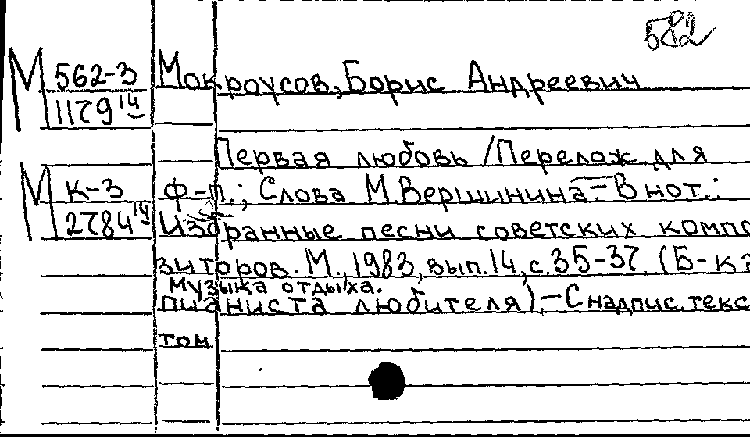 582
М 562-3 Мокроусов, Борис Андреевич
1179 14
Первая любовь /Перелож для
М К-3 ф-п.; Слова М.Вершинина.- В нот.:
2784 14 Избранные песни советских компо
зиторов. М., 1983, вып.14, с.35-37. (Б-ка
Музыка отдыха.
пианиста любителя).-С надпис. текс
том